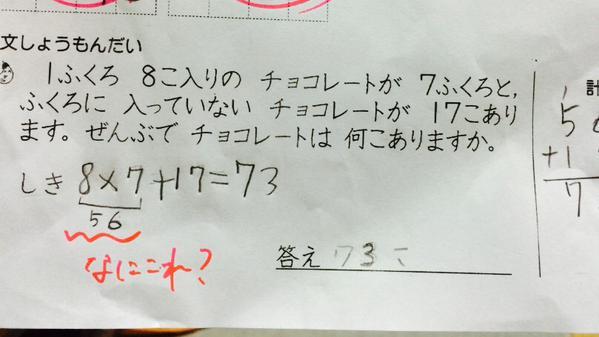 文しょうもんだい
1ふくろ 8こ入りの チョコレートが 7ふくろと,
ふくろに 入っていない チョコレートが 17こあり
ます。ぜんぶで チョコレートは 何こありますか。
しき 8×7+17=73
56
なにこれ?
答え 73こ
計
5
+1
7